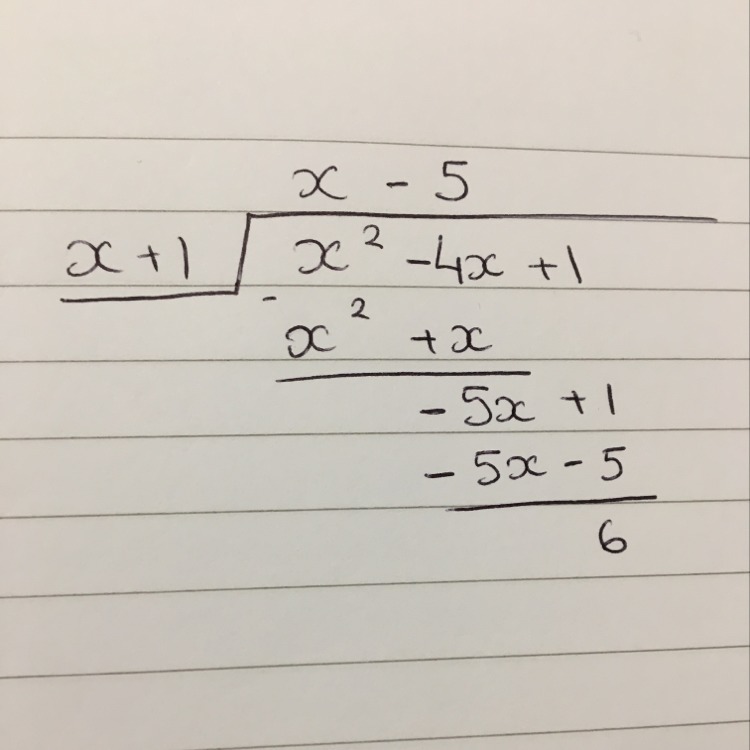 x - 5
x + 1 x² - 4x + 1
-
x² + x
- 5x + 1
- 5x - 5
6